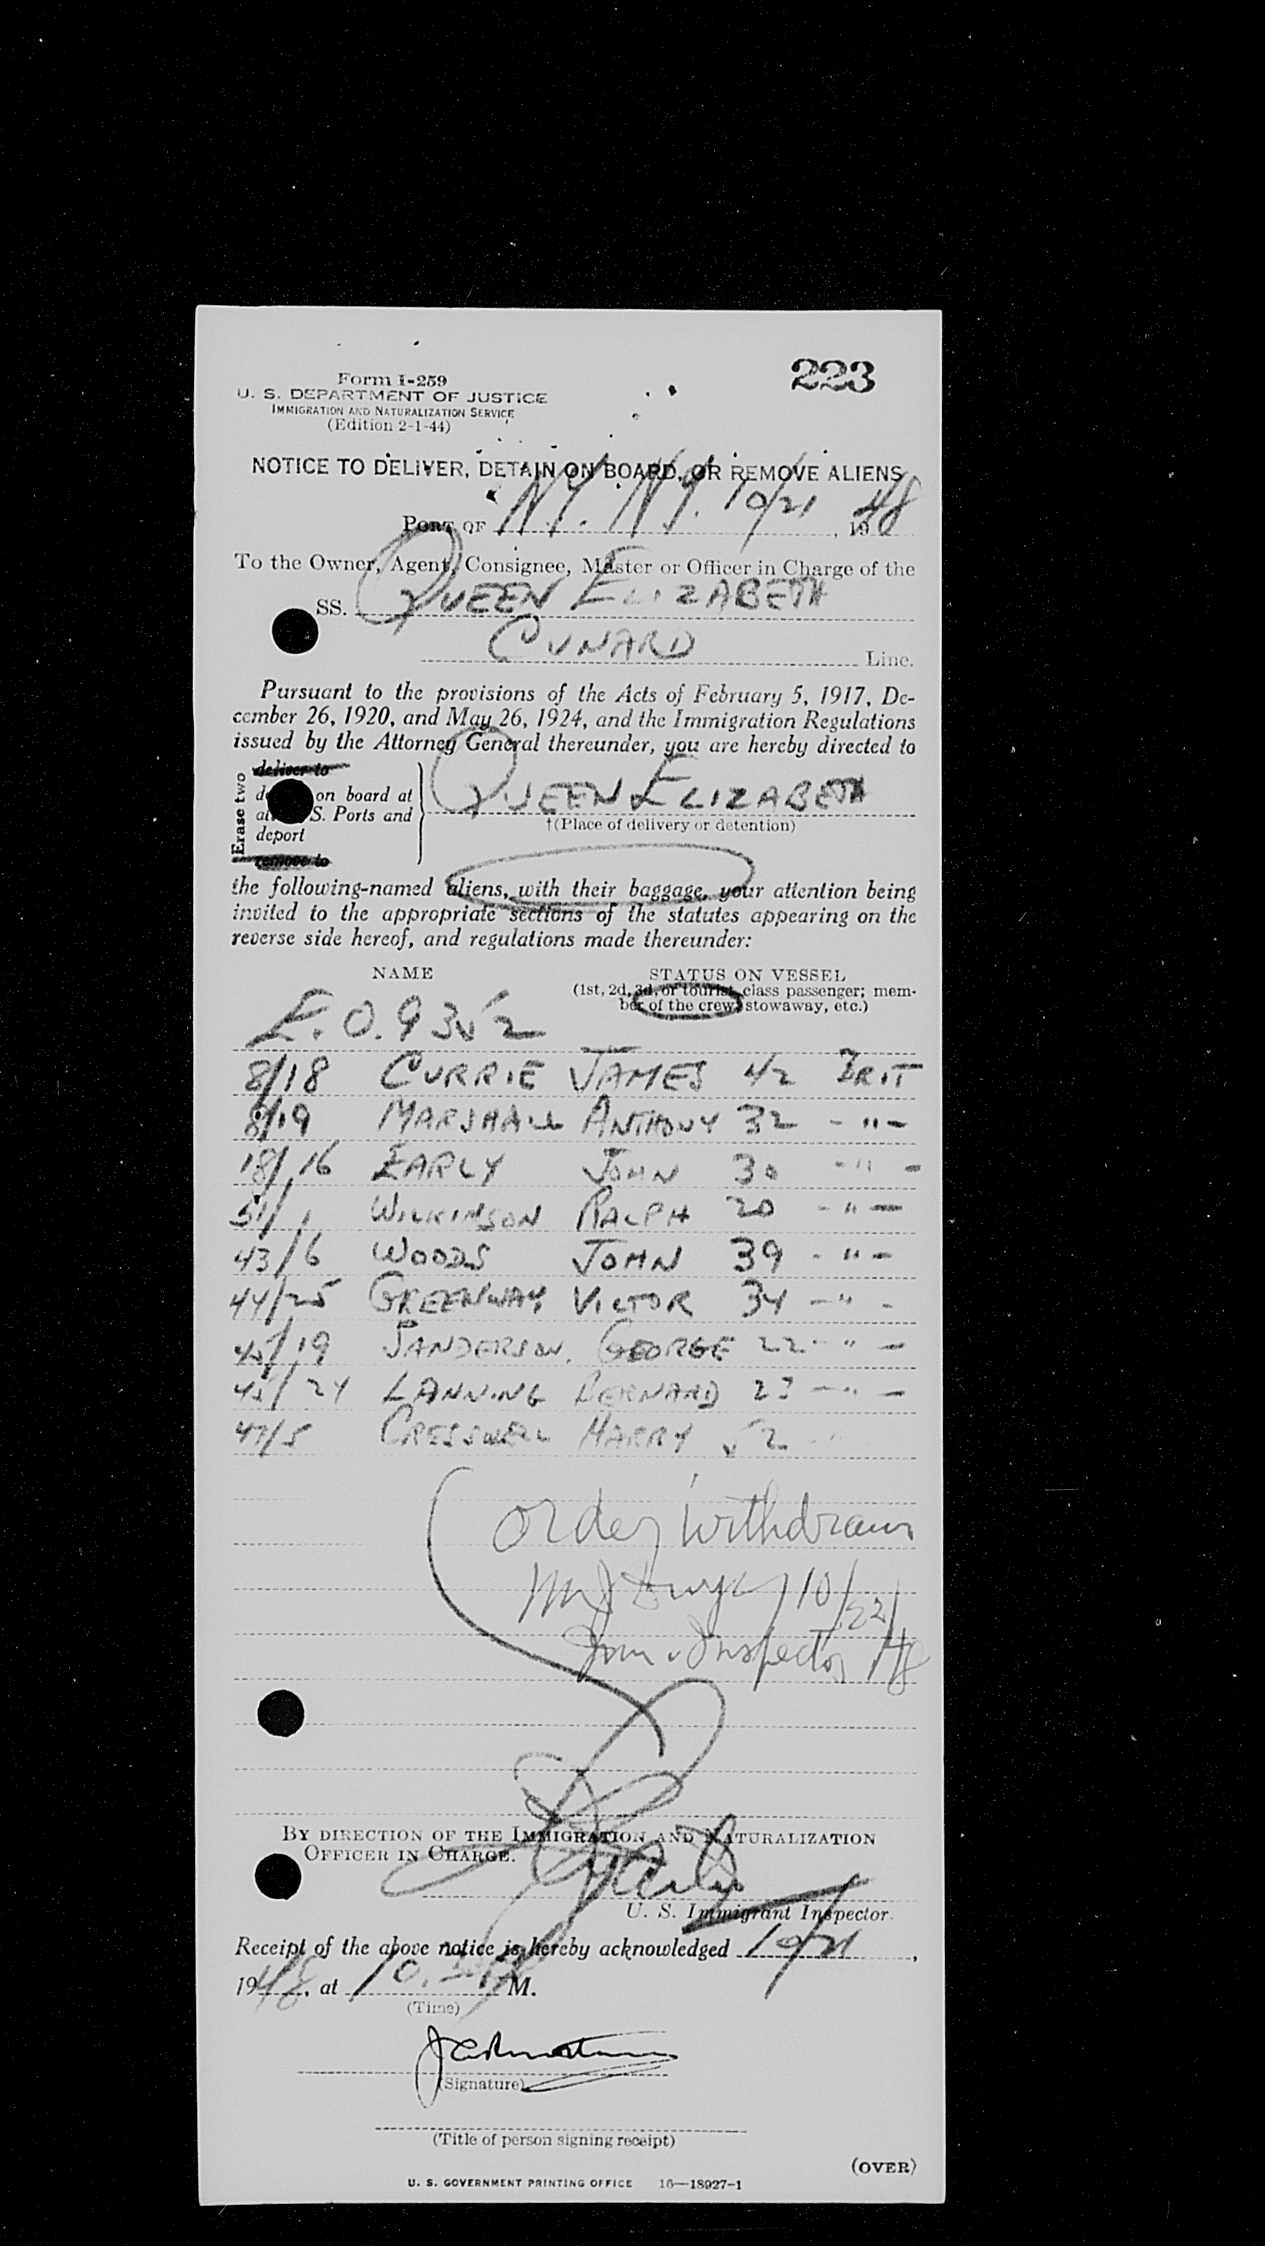 223
Form I-259
U. S. DEPARTMENT OF JUSTICE
IMMIGRATION AND NATURALIZATION SERVICE
(Edition 2-1-44)
NOTICE TO DELIVER, DETAIN ON BOARD, OR REMOVE ALIENS
PORT OF N.Y. N.Y. 10/21, 1948
To the Owner, Agent, Consignee, Master or Officer in Charge of the
SS. QUEEN ELIZABETH
CUNARD Line.
Pursuant to the provisions of the Acts of February 5, 1917, De-
cember 26, 1920, and May 26, 1924, and the Immigration Regulations
issued by the Attorney General thereunder, you are hereby directed to
Erase two
deliver to
on board at
S. Ports and
deport
remove to
QUEEN ELIZABETH
†(Place of delivery or detention)
the following-named aliens, with their baggage, your attention being
invited to the appropriate sections of the statutes appearing on the
reverse side hereof, and regulations made thereunder:
NAME STATUS ON VESSEL
(1st, 2d, 3d, or tourist class passenger; mem-
ber of the crew, stowaway, etc.)
E.O. 9352
8/18 CURRIE JAMES 42 BRIT
8/19 MARSHALL ANTHONY 32 - " -
18/16 EARLY JOHN 30 - " -
51/1 WILKINSON RALPH 20 - " -
43/6 WOODS JOHN 39 - " -
44/25 GREENWAY VICTOR 34 - " -
45/19 SANDERSON. GEORGE 22 - " -
45/24 LANNING BERNARD 23 - " -
47/5 CRESSWELL HARRY 52
Order withdrawn
10/22/48
Imm. Inspector
BY DIRECTION OF THE IMMIGRATION AND NATURALIZATION
OFFICER IN CHARGE.
U. S. Immigrant Inspector.
Receipt of the above notice is hereby acknowledged 10/21,
1948, at M.
(Time)
(Signature)
(Title of person signing receipt)
(OVER)
U. S. GOVERNMENT PRINTING OFFICE 16—18927-1